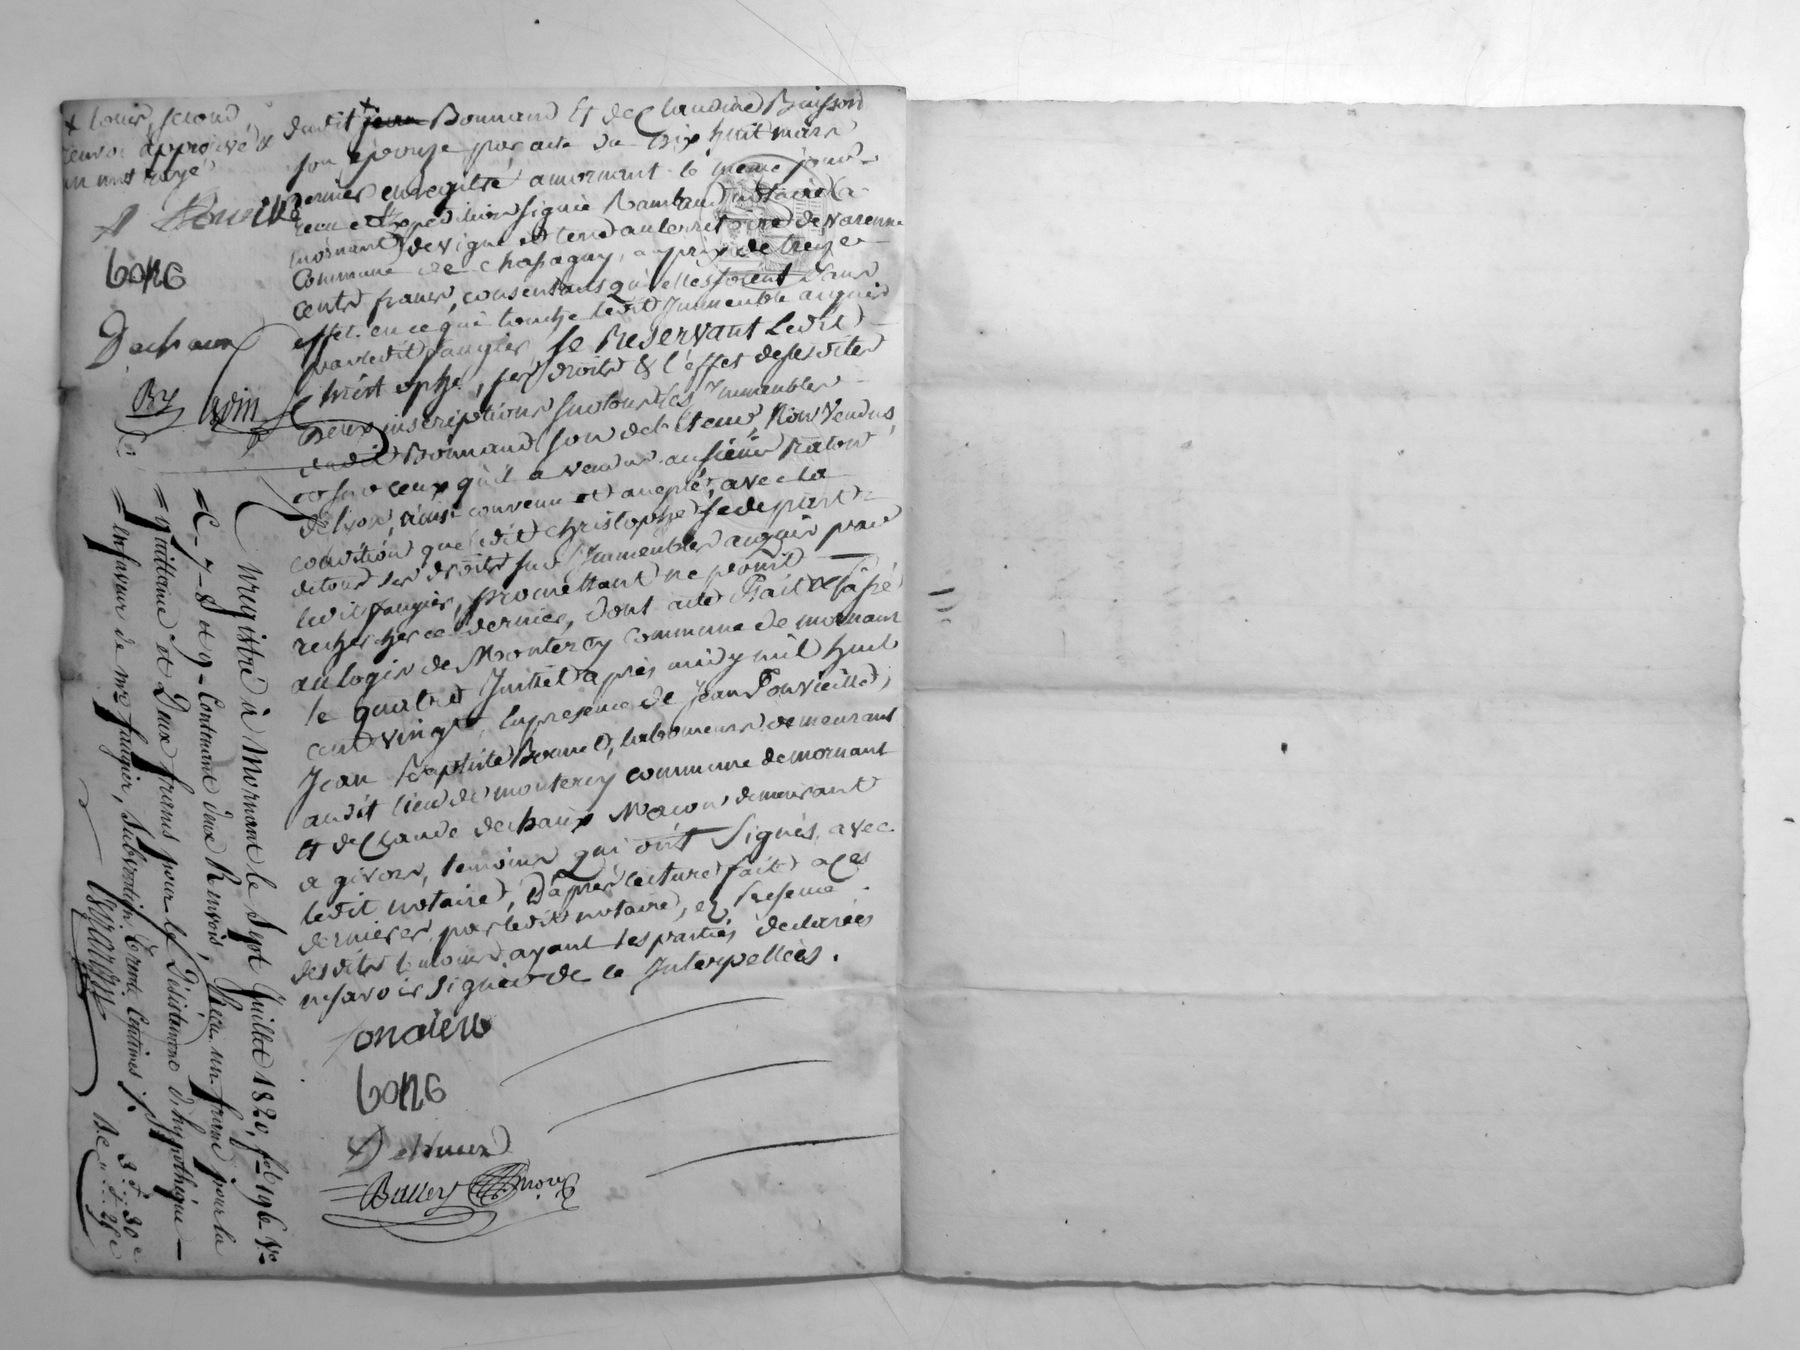 + Louis, second
renvoi approuvé &
un mot rayé
bone
Dechaux
dudit + jean Bonnand Et de Claudine Buisson
son épouse par acte du dix huit mars
dernier enregistré a mornant le même jour
recu et Expedition signée Rambaud notaire (a
mornant) de vigne et terre au territoire de varenne
Commune de Chassagny, au prix de treize
cents francs, consentant qu'elles soient sans
effet en ce qui touche ledit Immeuble acquis
par ledit faugier, se Reservant Ledit
Christophe, ses droits & l'effet desesdites
deux inscriptions sur tous les Immeubles
dudit Bonnand son debiteur, Non Vendus
et sur ceux qu'il a vendus au sieur Raton
de lyon, ainsi convenu et accepté, avec la
condition que ledit Christophe se depart
de tous ses droits sur Immeubles acquis par
ledit faugier, promettant ne point
rechercher ce dernier, dont acte Fait & passé
au logis de Montercy commune de mornant
le quatre Juillet après midy mil huit
cent vingt, En presence de Jean Fonvieille,
Jean Baptiste Bonnet, laboureurs demeurant
audit lieu de montercy commune de mornant
Et de Claude dechaux Macon demeurant
a givors, temoins qui ont signés avec
ledit notaire, D'après lecture fait a ces
derniers par ledit notaire, en presence
desdits temoins ayant les parties déclarées
ne savoir signer de ce Interpellées.
bone
Dechaux
Enregistré à Mornant le Sept Juillet 1820, fol 196 Vo
C. 7-8 et 9- Contenant deux Renvois, Reçu un franc pour la
quittance et Deux francs pour le Désistement d'hypothèque
en faveur de mre faugier, Subvention Trente Centimes